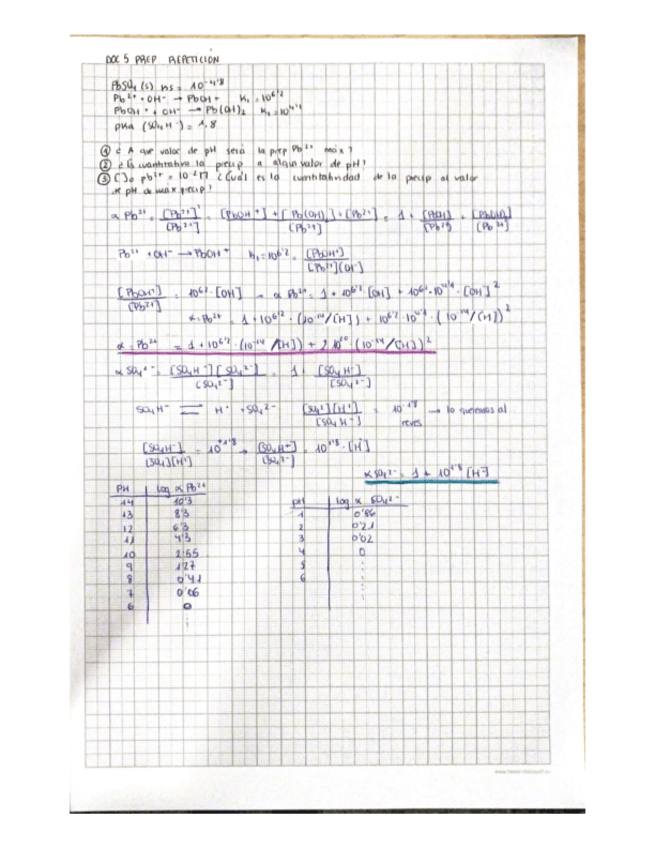 DOC 5 PREP REPETICION
PbSO₄ (s) Ks = 10⁻⁴'⁸
Pb²⁺ + OH⁻ → PbOH⁺ K₁ = 10⁶'²
PbOH⁺ + OH⁻ → Pb(OH)₂ K₂ = 10⁴'⁴
pKa (SO₄H⁻) = 1,8
① ¿ A que valor de pH será la prep Pb²⁺ max?
② ¿Es cuantitativa la precip a algún valor de pH?
③ [ ]o pb²⁺ = 10⁻² M ¿Cuál es la cuantitatividad de la precip al valor
de pH de max precip?
α Pb²⁺ = [Pb²⁺]' / [Pb²⁺] = [PbOH⁺] + [Pb(OH)₂] + [Pb²⁺] / [Pb²⁺] = 1 + [PbOH] / [Pb²⁺] + [Pb(OH)₂] / [Pb²⁺]
Pb²⁺ + OH⁻ → PbOH⁺ K₁ = 10⁶'² = [PbOH⁺] / [Pb²⁺][OH⁻]
[PbOH⁺] / [Pb²⁺] = 10⁶'² · [OH] → α Pb²⁺ = 1 + 10⁶'² · [OH] + 10⁶'² · 10⁴'⁴ · [OH]²
α Pb²⁺ = 1 + 10⁶'² · (10⁻¹⁴/[H]) + 10⁶'² · 10⁴'⁴ · (10⁻¹⁴/[H])²
α Pb²⁺ = 1 + 10⁶'² · (10⁻¹⁴/[H]) + 2·10¹⁰ · (10⁻¹⁴/[H])²
α SO₄²⁻ = [SO₄H⁻][SO₄²⁻] / [SO₄²⁻] = 1 + [SO₄H⁻] / [SO₄²⁻]
SO₄H⁻ ⇌ H⁺ + SO₄²⁻ [SO₄²⁻][H⁺] / [SO₄H⁻] = 10⁻¹'⁸ → lo queremos al
reves
[SO₄H⁻] / [SO₄][H⁺] = 10⁺¹'⁸ → [SO₄H⁺] / [SO₄²⁻] = 10¹'⁸ · [H⁺]
α SO₄²⁻ = 1 + 10¹'⁸ [H⁺]
PH log α Pb²⁺
14 10'3
13 8'3
12 6'3
11 4'3
10 2'55
9 1'27
8 0'41
7 0'06
6 0
pH log α SO₄²⁻
1 0'86
2 0'21
3 0'02
4 0
5
6